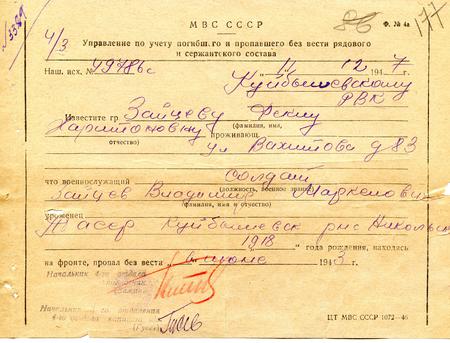 5389
МВС СССР
86
Ф. № 4а
177
ч/з
Управление по учету погибш.го и пропавшего без вести рядового
и сержантского состава
Наш. исх. № 49786с
"11" 12 194 7 г
Куйбышевскому
РВК
Известите гр Зайцеву Феклу
Харитоновну
(фамилия, имя,
отчество)
проживающ.
ул Вахитова д 83
солдат
что военнослужащий
(должность, военное звание)
Зайцев Владимир Маркелович
(фамилия, имя и отчество)
уроженец
ТАССР Куйбышевск
1918
года рождения, находясь
на фронте, пропал без вести
июне
194 3 г.
Начальник 4-го отдела
Начальник
отделения
4-го отдела капитан
(Гусев)
ЦТ МВС СССР 1072—46